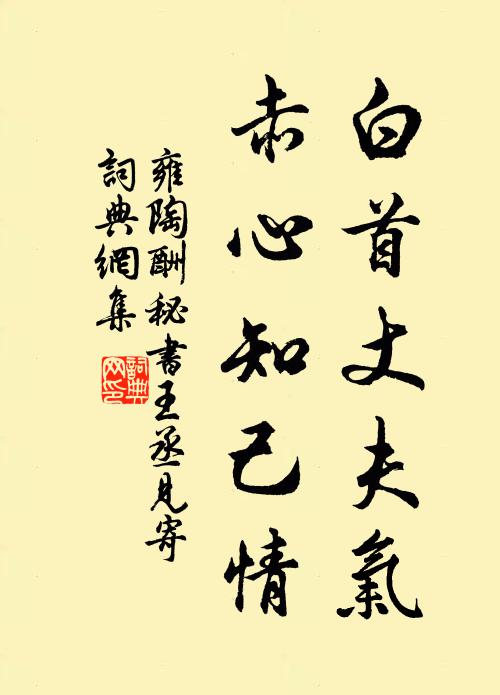 白首丈夫氣
赤心知己情
雍陶酬秘書王丞見寄
詞典網集
詞典网印